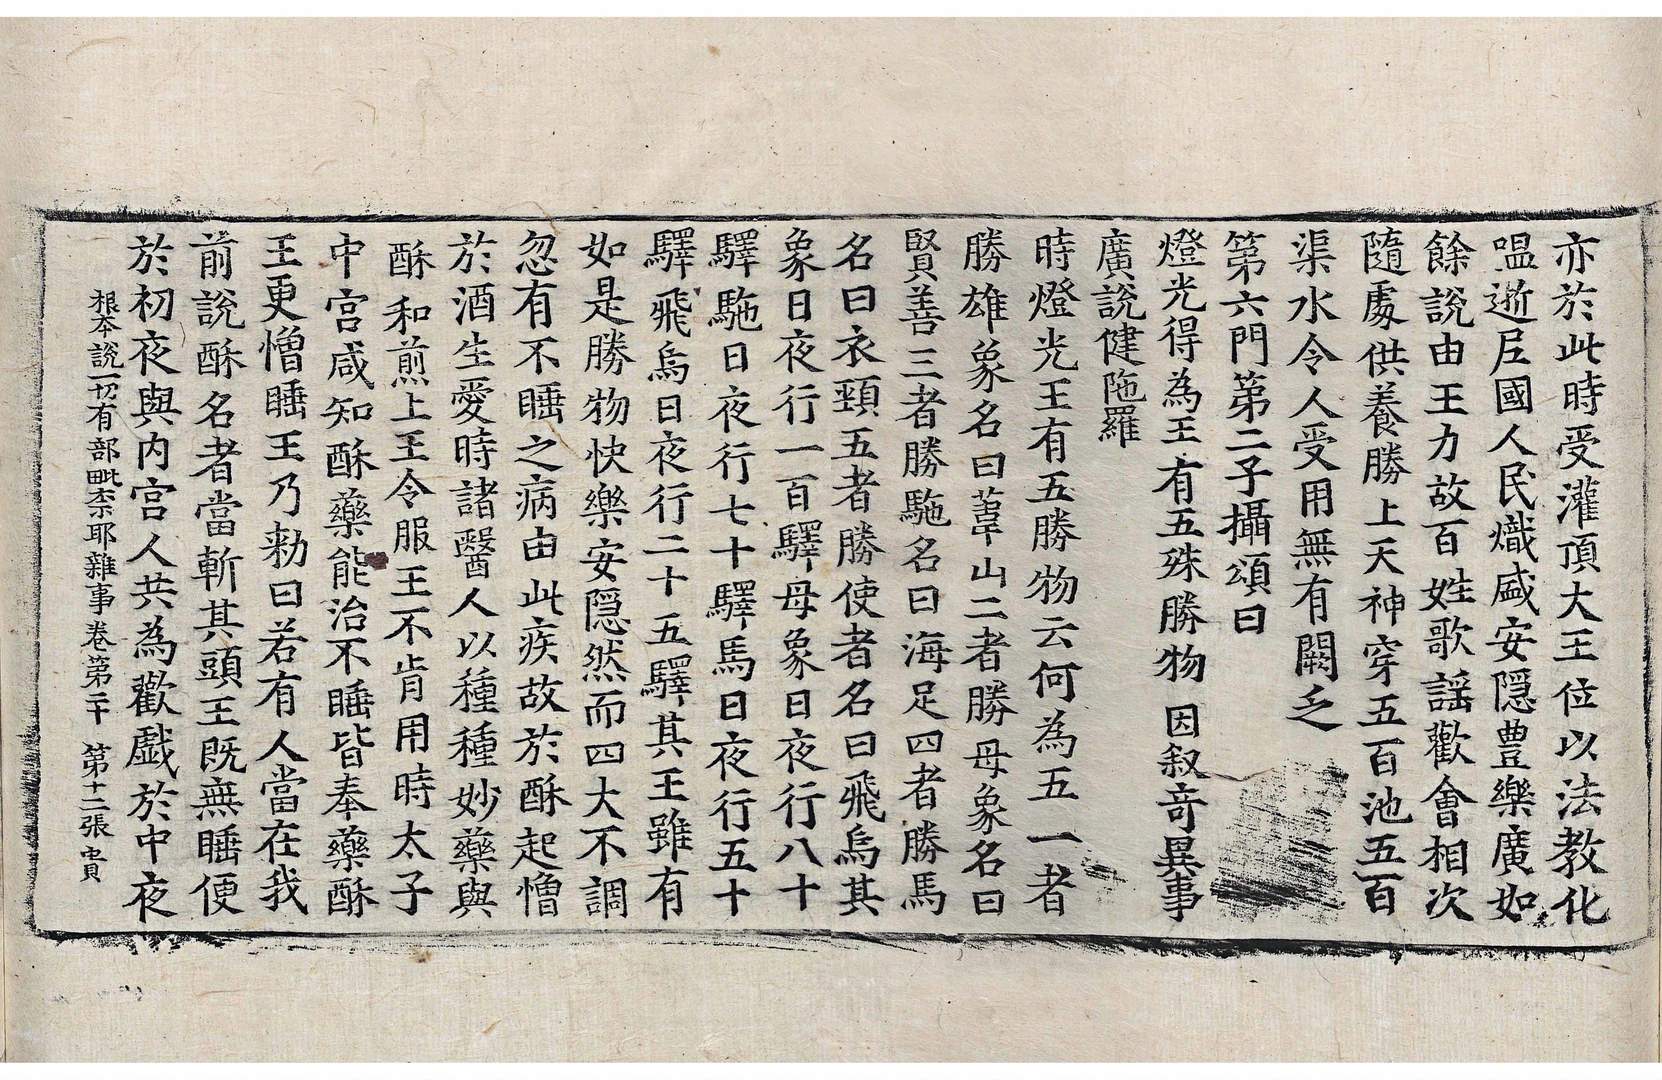 亦於此時受灌頂大王位以法教化
嗢逝尼國人民熾盛安隱豊樂廣如
餘說由王力故百姓歌謡歡會相次
隨處供養勝上天神穿五百池五百
渠水令人受用無有闕乏
第六門第二子攝頌曰
燈光得為王有五殊勝物 因叙奇異事
廣說健陁羅
時燈光王有五勝物云何為五一者
勝雄象名曰葦山二者勝母象名曰
賢善三者勝駞名曰海足四者勝馬
名曰衣頸五者勝使者名曰飛烏其
象日夜行一百驛母象日夜行八十
驛駞日夜行七十驛馬日夜行五十
驛飛烏日夜行二十五驛其王雖有
如是勝物快樂安隱然而四大不調
忽有不睡之病由此疾故於酥起憎
於酒生愛時諸醫人以種種妙藥與
酥和煎上王令服王不肯用時太子
中宮咸知酥藥能治不睡皆奉藥酥
王更憎睡王乃勑曰若有人當在我
前說酥名者當斬其頭王既無睡便
於初夜與內宮人共為歡戲於中夜
根本說一切有部毗柰耶雜事卷第二十 第十二張 貴